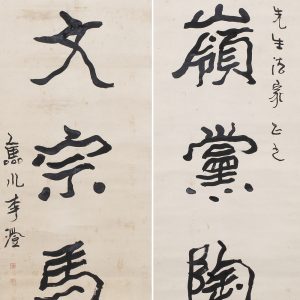 先生法家正之
嶺黨陶
文宗馬
李澄